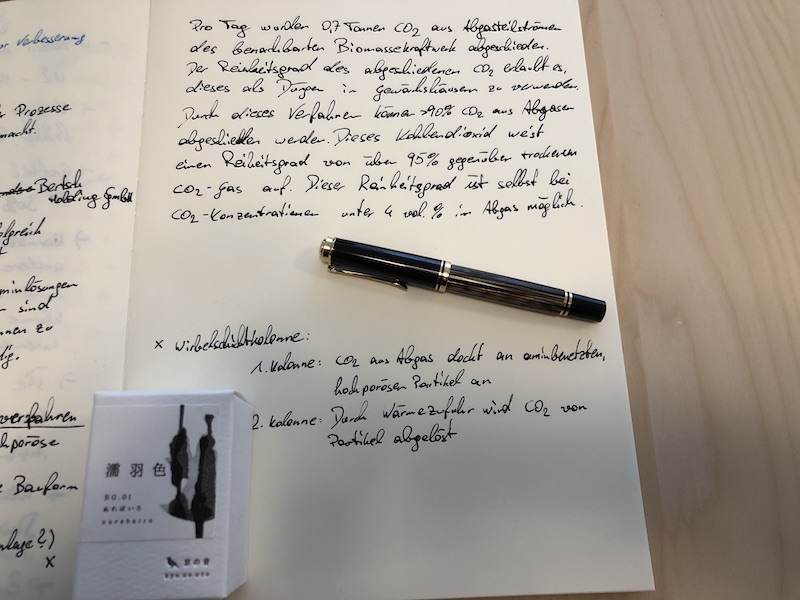 or Verbesserung
r Prozesse
macht.
Bertsch
Holding GmbH
olgreich
t
minlösungen
n sind
nnen zu
dig.
verfahren
chporöse
e Bauform
nlage?)
x
Pro Tag wurden 0,7 Tonnen CO2 aus Abgasteilströmen
des benachbarten Biomassekraftwerk abgeschieden.
Der Reinheitsgrad des abgeschiedenen CO2 erlaubt es,
dieses als Dünger in Gewächshäusern zu verwenden.
Durch dieses Verfahren können >90% CO2 aus Abgasen
abgeschieden werden. Dieses Kohlendioxid weist
einen Reiheitsgrad von über 95% gegenüber trockenem
CO2-Gas auf. Dieser Reinheitsgrad ist selbst bei
CO2-Konzentrationen unter 4 vol.% im Abgas möglich.
x Wirbelschichtkolonne:
1. Kolonne: CO2 aus Abgas dockt an aminbenetzten,
hochporösen Partikel an
2. Kolonne: Durch Wärmezufuhr wird CO2 von
Partikel abgelöst
濡羽色
NO.01
ぬればいろ
nurebairo
京の音
kyo no oto